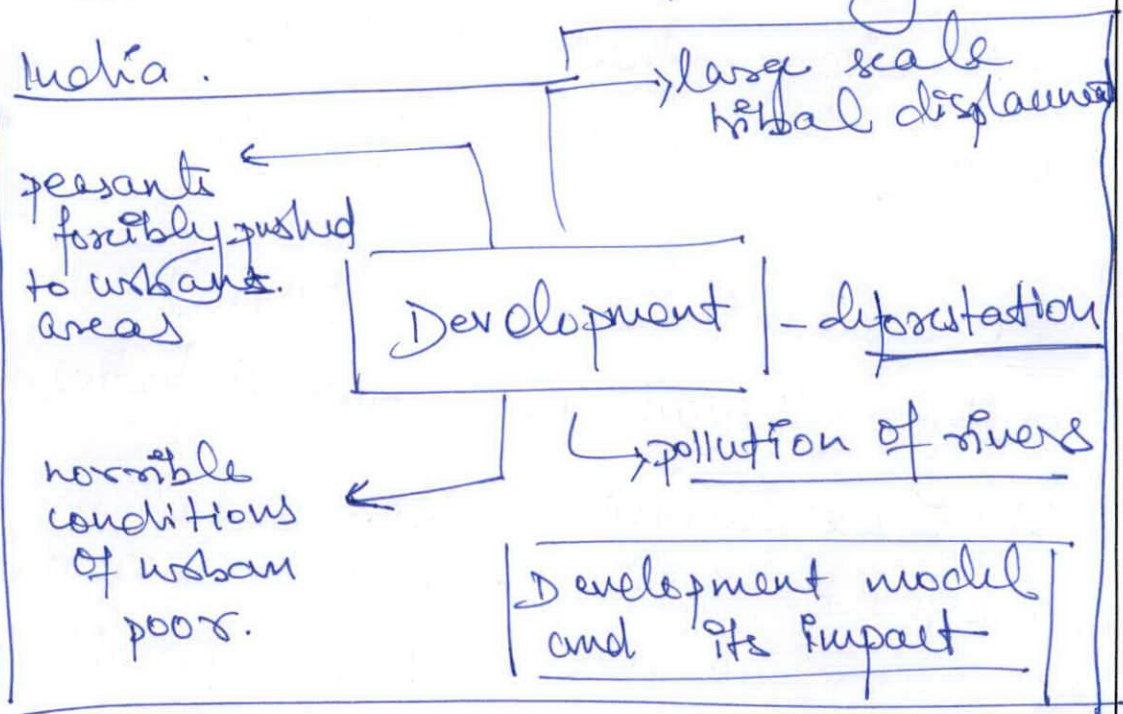 India.
large scale
tribal displacement
peasants
forcibly pushed
to urbans.
areas
Development
- deforestation
pollution of rivers
horrible
conditions
of urban
poor.
Development model
and its impact